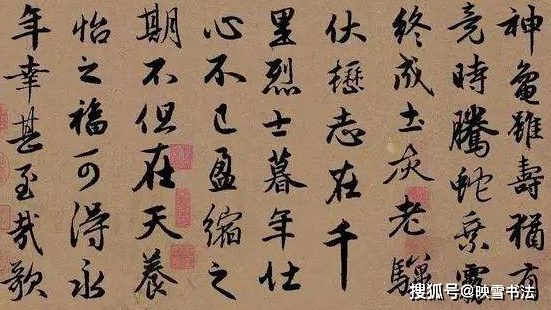 神龜雖壽猶有
竟時騰蛇乘霧
終成土灰老驥
伏櫪志在千
里烈士暮年壯
心不已盈縮之
期不但在天養
怡之福可得永
年幸甚至哉歌
搜狐号@映雪书法